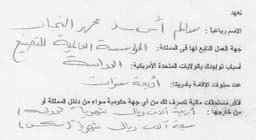 تعهد
الاسم رباعيا : سالم أحمد محمد النجار
جهة العمل التابع لها في المملكة : المؤسسة العالمية للتصنيع
أسباب تواجدك بالولايات المتحدة الأمريكية : الدراسة
عدد سنوات الإقامة بأمريكا : أربعة سنوات
أذكر مستحقات مالية تصرف لك من أي جهة حكومية سواء من داخل المملكة أو
من خارجها : أربعة ألاف ريال شهريا
ألاف ريال شهريا ( )